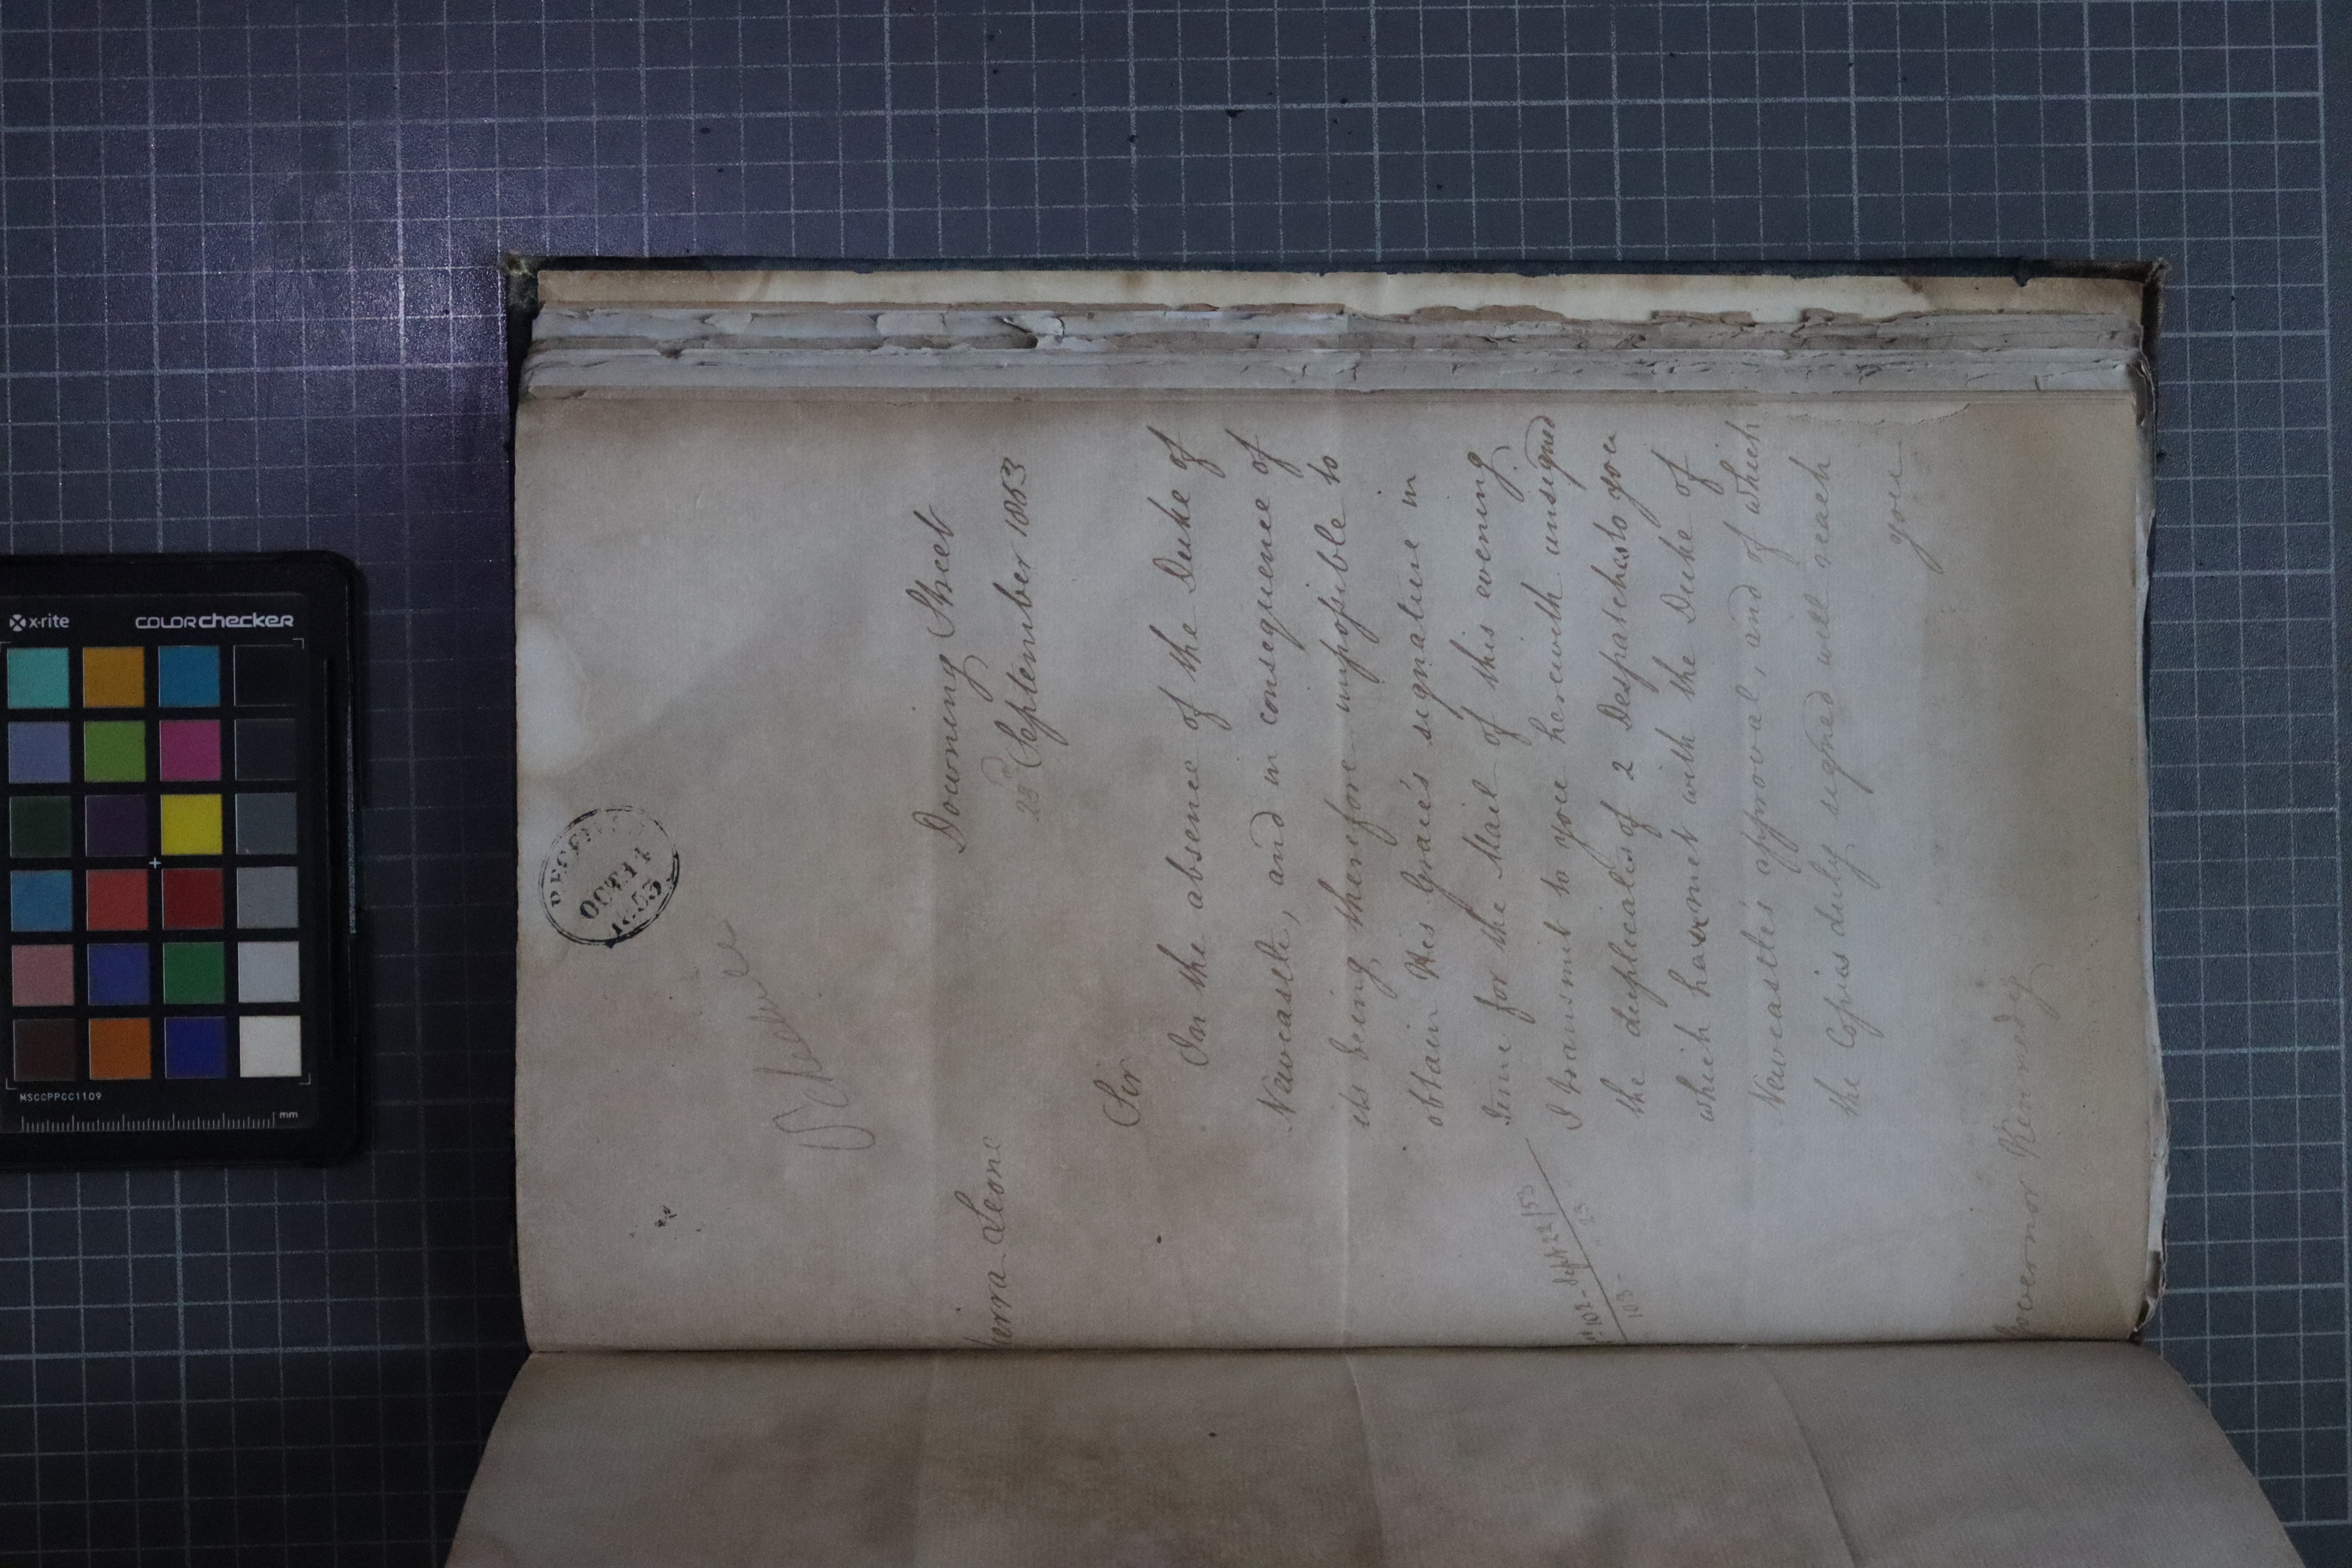 RECEIVED
OCT 14
1853
Schedule
Sierra Leone
Downing Street
23 September 1853
Sir
In the absence of the Duke of
Newcastle, and in consequence of
its being therefore impossible to
obtain His Grace's signature in
time for the Mail of this evening
I transmit to you herewith unsigned
the duplicates of 2 Despatches to you
which have met with the Duke of
Newcastle's approval, and of which
the Copies duly signed will reach
you
102 - Sept 22/53
103 - " 23
Governor Kennedy
x-rite colorchecker
MSCCPPCC1109
mm